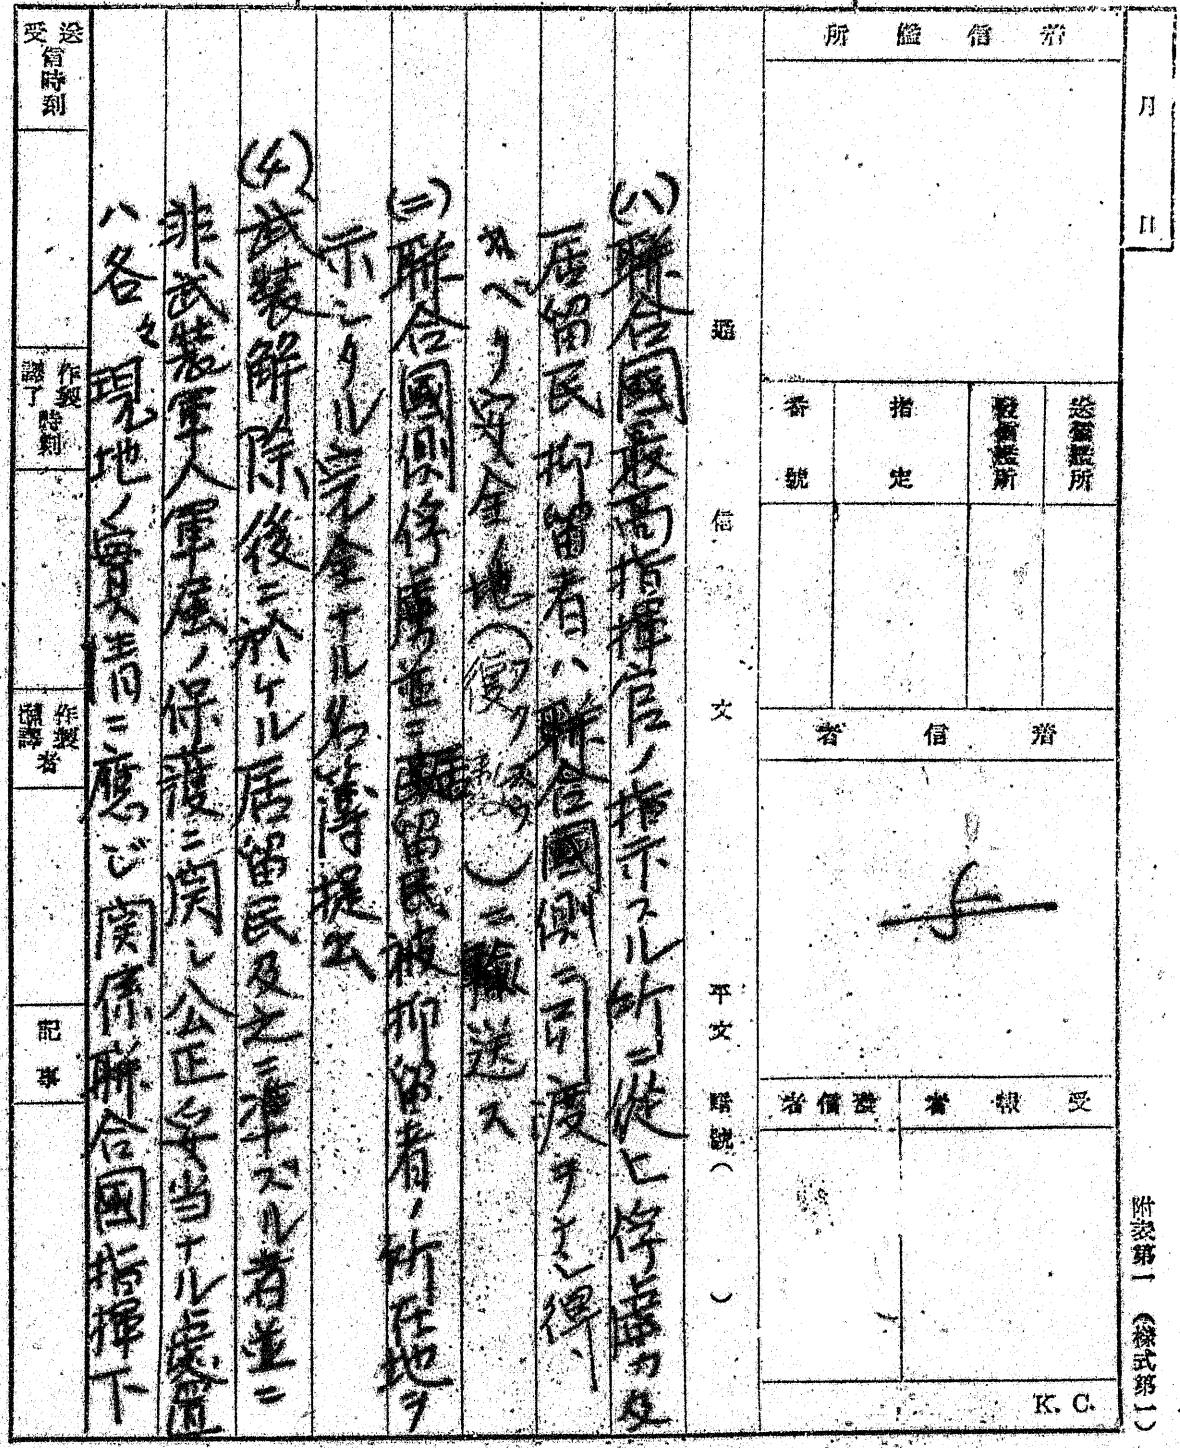 月 日
附表第一 (様式第一)
着信艦所
番號
指定
發信艦所
送信艦所
着信者
發信者
受報者
K. C.
通信文 平文 暗號( )
(ハ)聯合國最高指揮官ノ指示スル所ニ從ヒ俘虜及
居留民抑留者ハ聯合國側ニ引渡ヲナシ得
ベク安全ノ地( )ニ輸送ス
(ニ)聯合國側俘虜並ニ居留民被抑留者ノ所在地ヲ
示シタル完全ナル名簿提出
(4)武装解除後ニ於ケル居留民及之ニ準ズル者並ニ
非武装軍人軍属ノ保護ニ関シ公正妥当ナル處置
ハ各々現地ノ實情ニ應ジ関係聯合國指揮下
送受信時刻
作製譯了時刻
作製翻譯者
記事